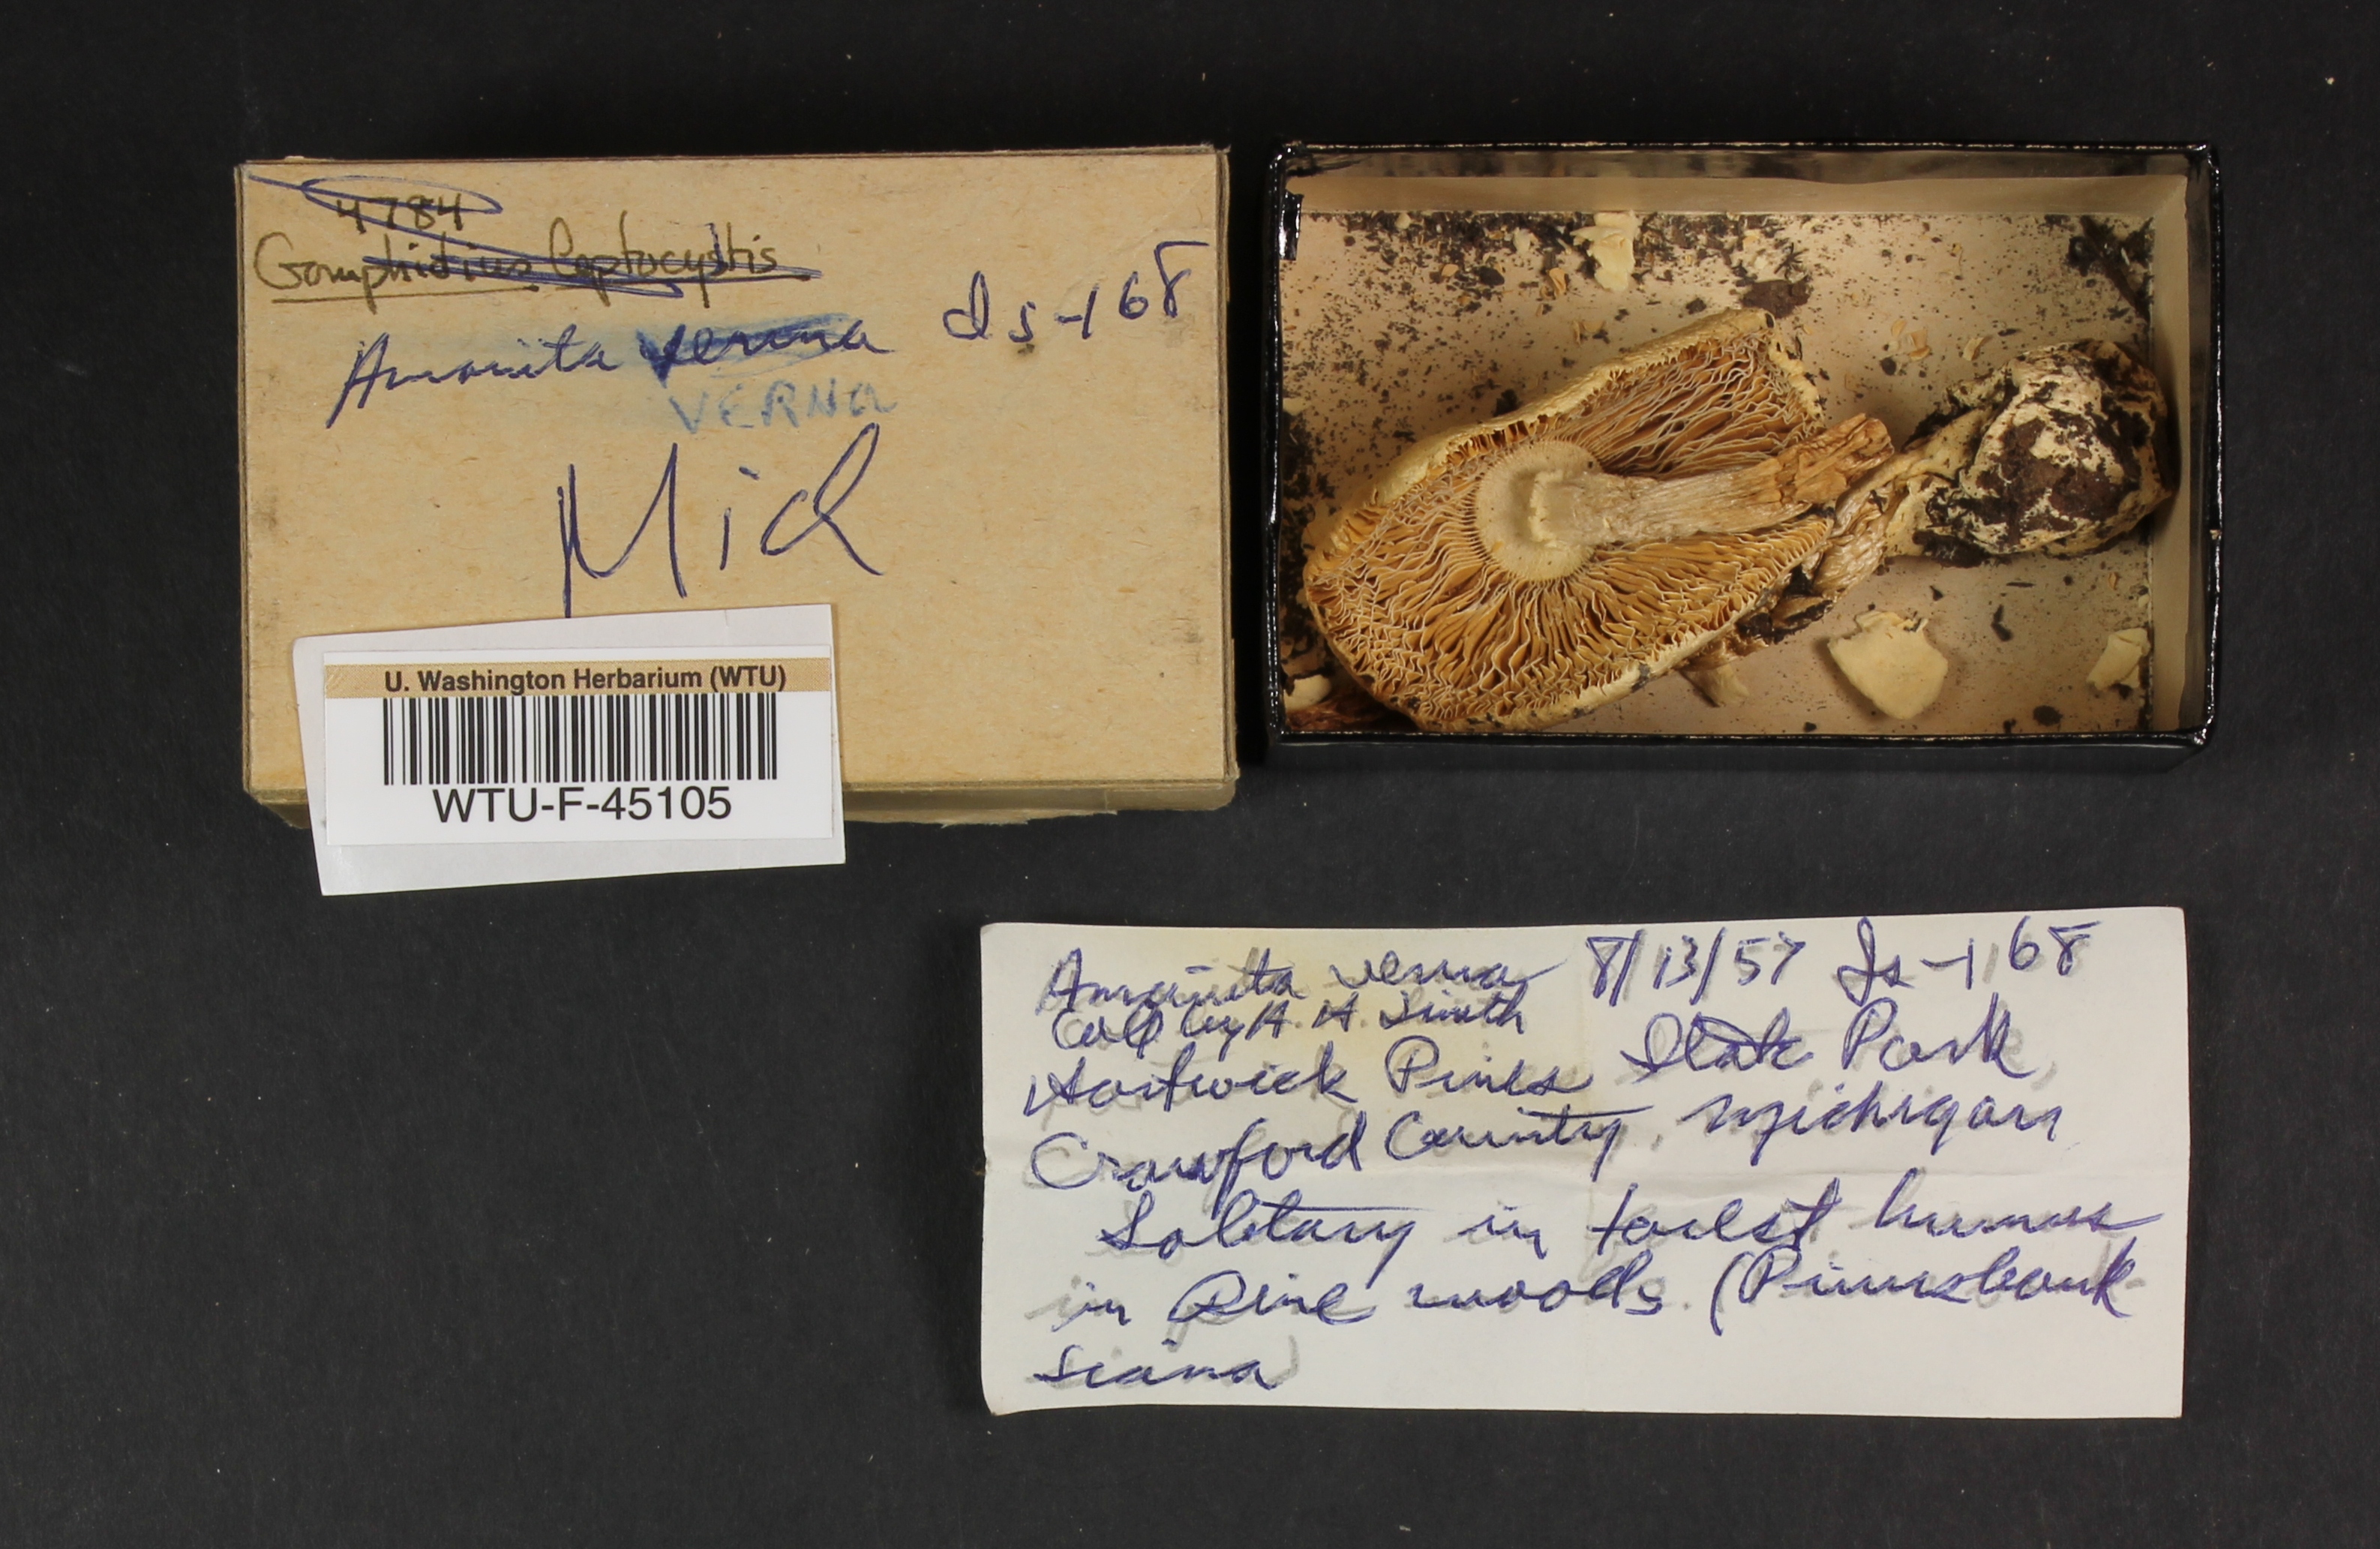 4784
Gomphidius leptocystis
Amanita verna Is-168
VERNA
Mid
U. Washington Herbarium (WTU)
WTU-F-45105
Amanita verna 8/13/57 Is-168
Coll by A. H. Smith
Hartwick Pines State Park
Crawford County, Michigan
Solitary in forest humus
in Pine woods. (Pinus bank
siana)